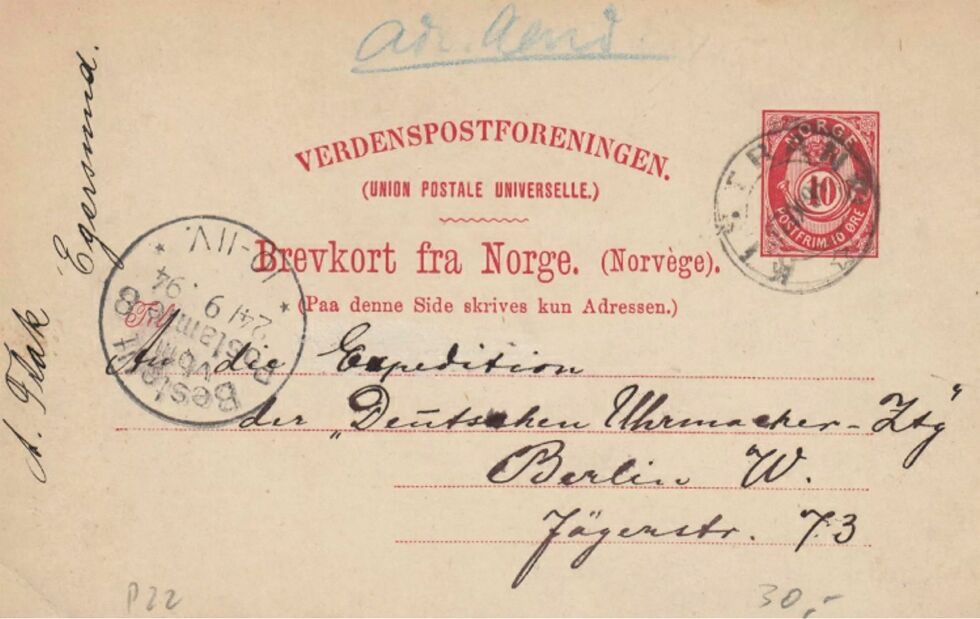 Adr. Aend.
VERDENSPOSTFORENINGEN.
(UNION POSTALE UNIVERSELLE.)
Brevkort fra Norge. (Norvège).
(Paa denne Side skrives kun Adressen.)
Til
An die Expedition
der „Deutschen Uhrmacher-Ztg“
Berlin W.
Jägerstr. 73
NORGE
10
POSTFRIM. 10 ØRE
Bestellt
vom
Postamte 8
24/9 . 94
10-11V.
A. Flak Egersund.
P22
30,-